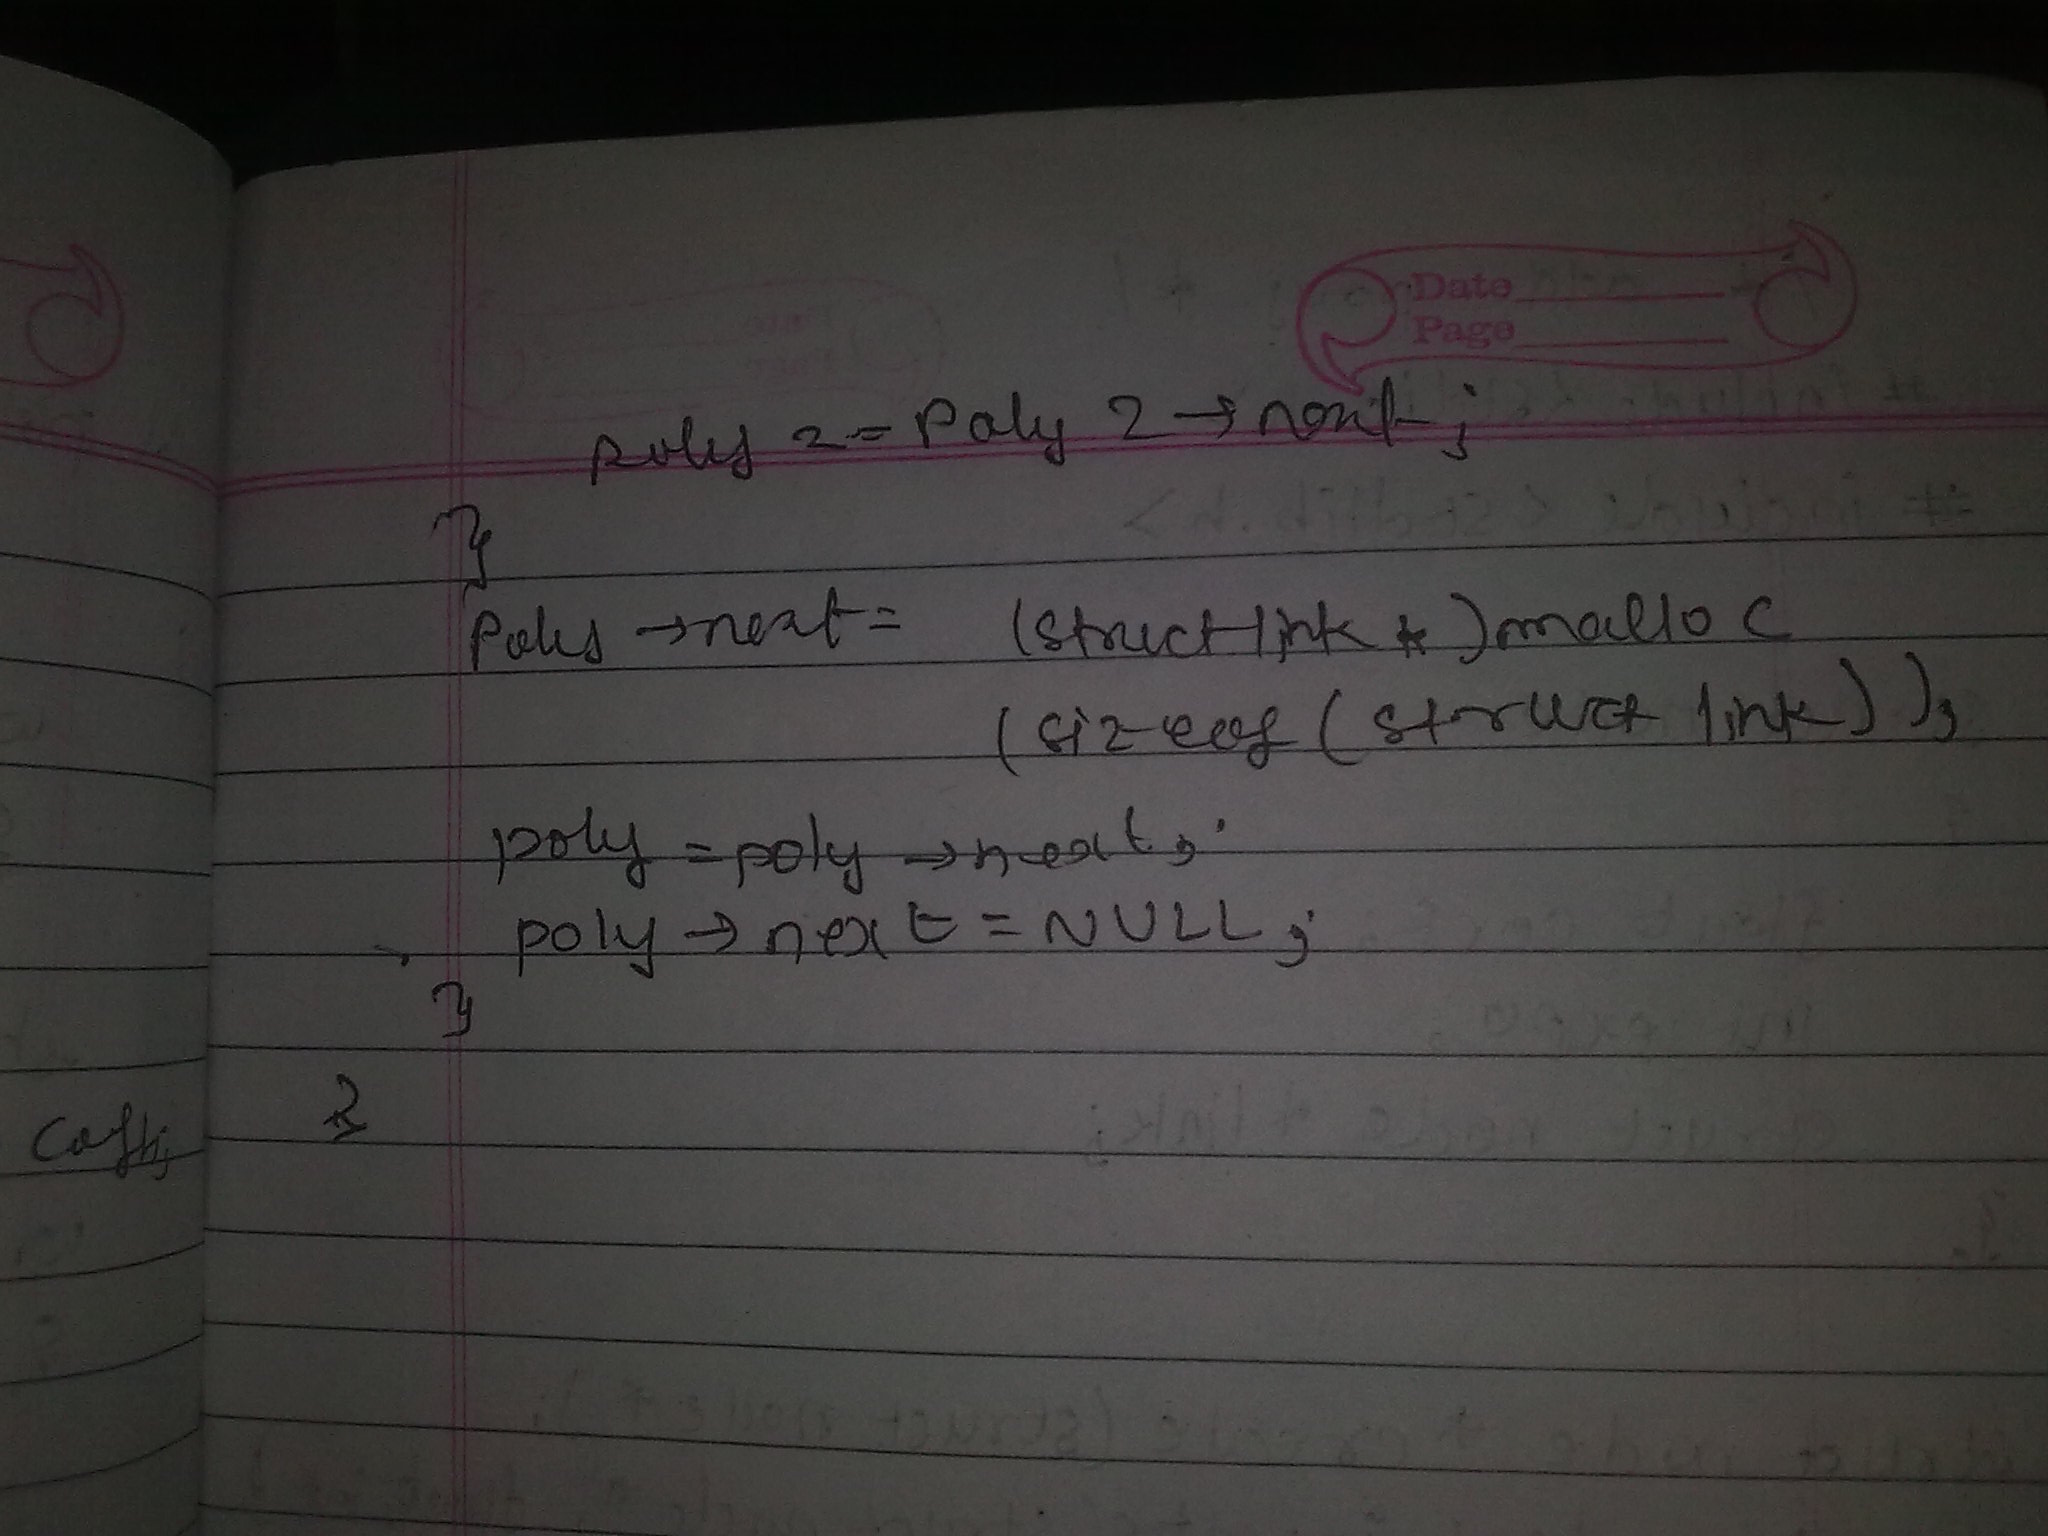 Date
Page
poly 2 = Poly 2 → next ;
}
Poly → next = (struct link * ) malloc
(sizeof ( struct link ) );
poly = poly → next ;
poly → next = NULL ;
}
}